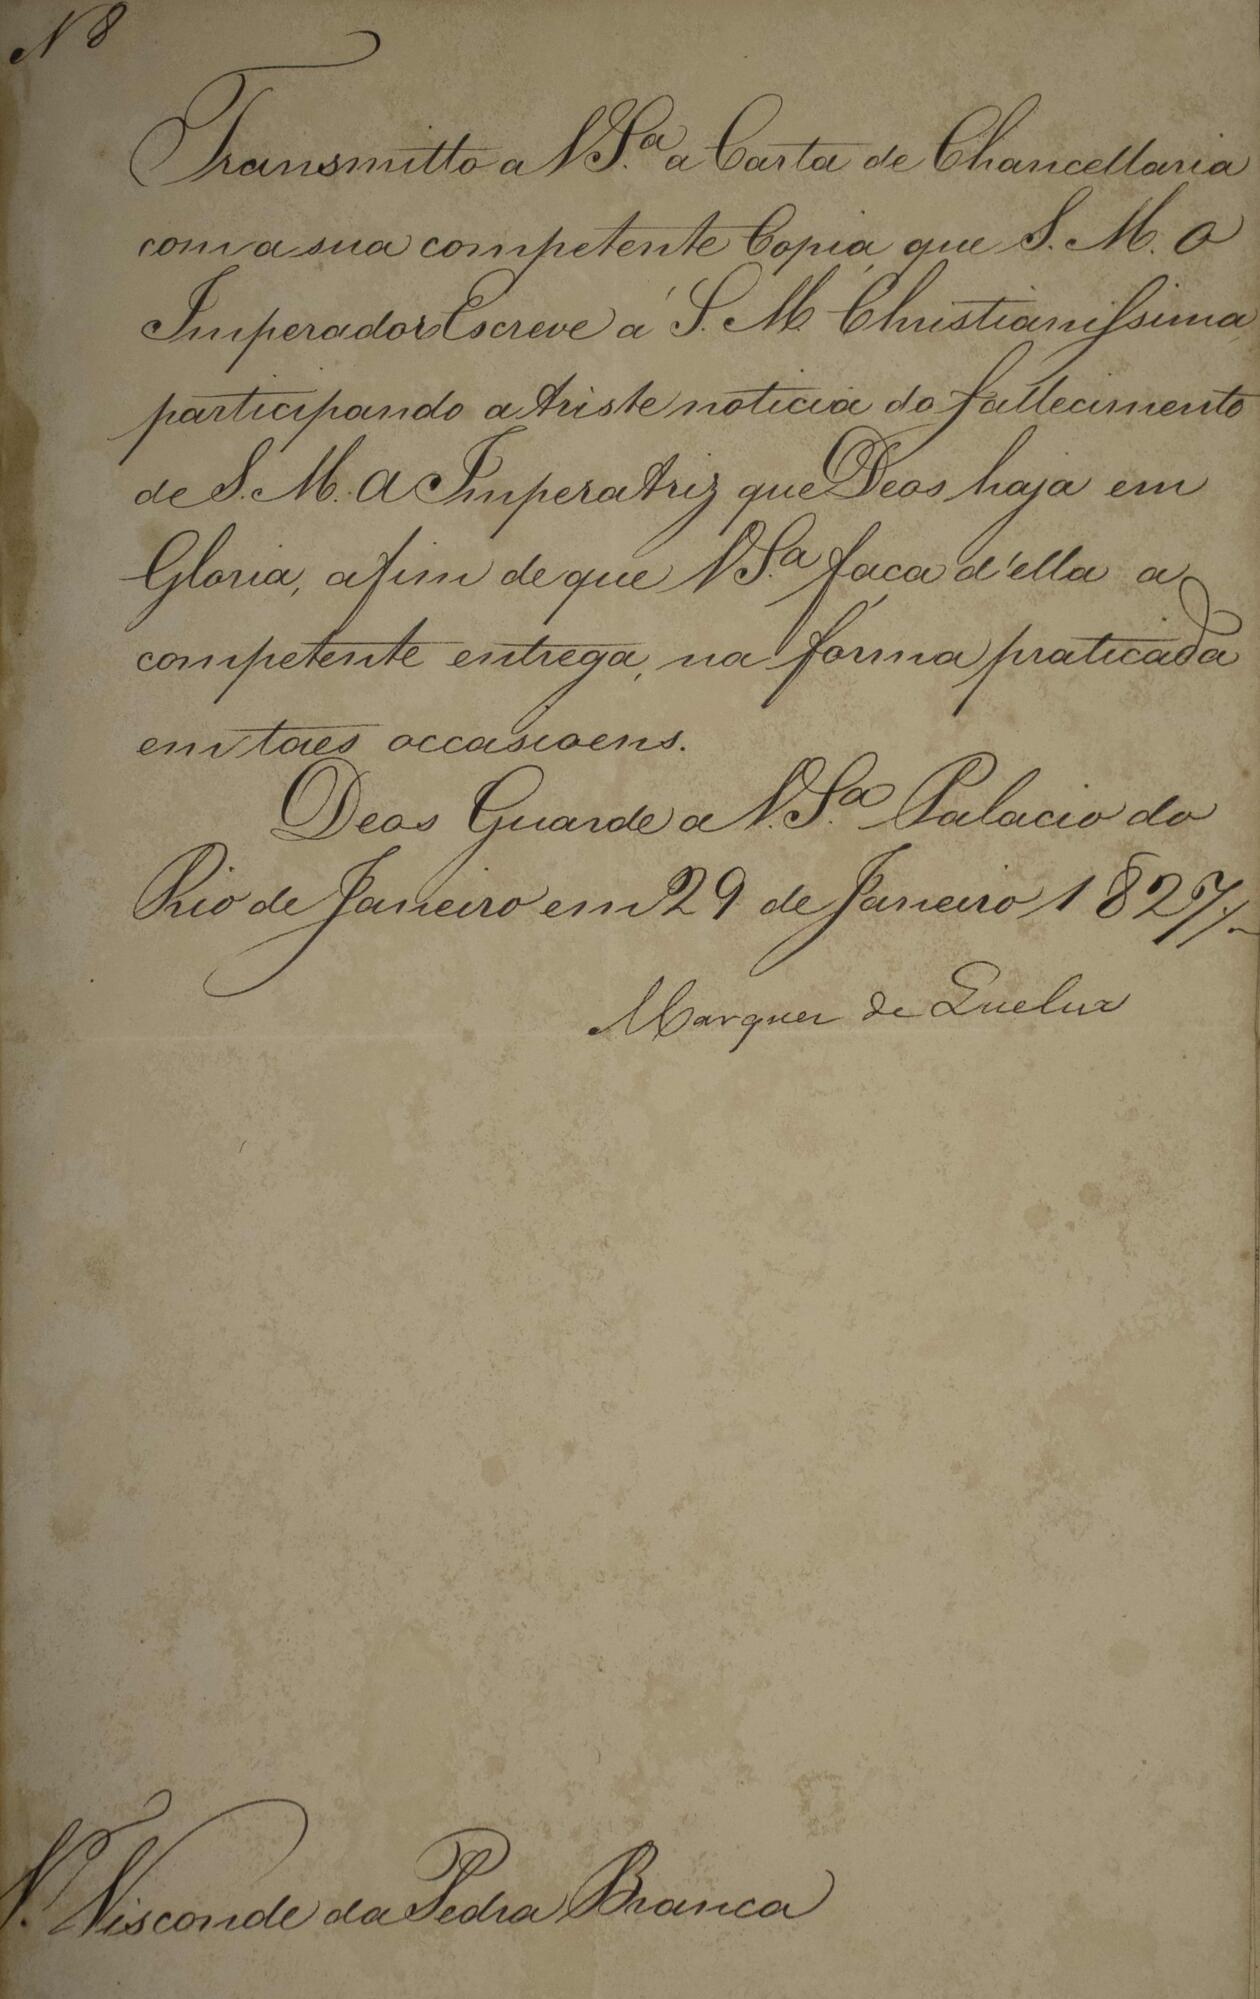 N 8
Transmitto a V S.ª a Carta de Chancellaria
com a sua competente Copia, que S. M. O
Imperador Escreve á S. M. Christianissima,
participando a triste noticia do fallecimento
de S. M. A Imperatriz que Deos haja em
Gloria, afim de que V S.ª faça d'ella a
competente entrega, na fórma praticada
em taes occasioens.
Deos Guarde a V. S.ª Palacio do
Rio de Janeiro em 29 de Janeiro 1827/.
Marquez de Queluz
Visconde da Pedra Branca